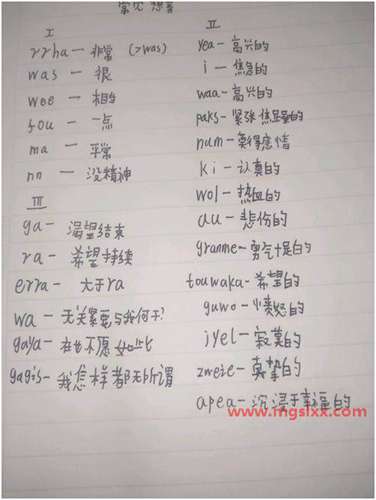 常见
I
rrha — 非常 (>was)
was — 很
wee — 相当
fou — 一点
ma — 平常
nn — 没精神
III
ga — 渴望结束
ra — 希望持续
erra — 大于ra
wa — 无关紧要与我何干?
gaya — 再也不愿如此
gagis — 我怎样都无所谓
II
yea — 高兴的
i — 焦急的
waa — 高兴的
paks — 紧张焦虑的
num — 莫得感情
ki — 认真的
wol — 热血的
au — 悲伤的
granme — 勇气十足的
touwaka — 希望的
guwo — 愤怒的
iyel — 寂寞的
zweie — 真挚的
apea — 沉浸于幸福的
www.mgslxx.com